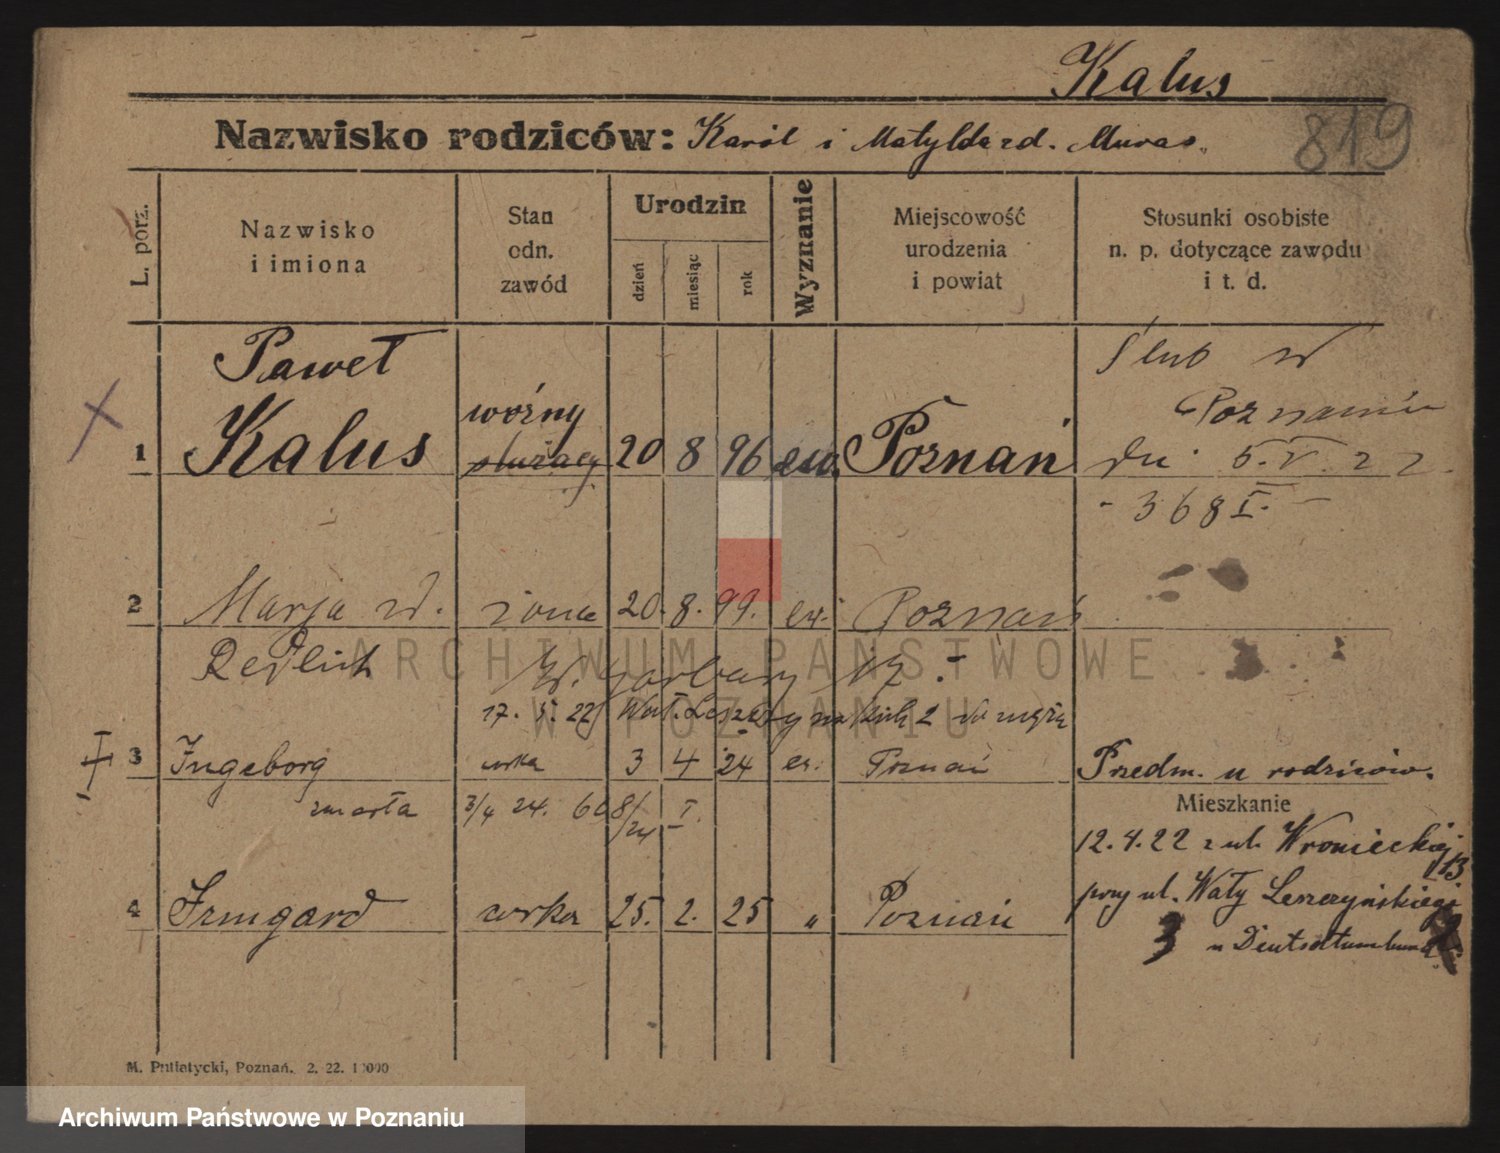 Kalus
819
Nazwisko rodziców: Karól i Matylda zd. Muras.
L. porz.
Nazwisko
i imiona
Stan
odn.
zawód
Urodzin
dzień
miesiąc
rok
Wyznanie
Miejscowość
urodzenia
i powiat
Stosunki osobiste
n. p. dotyczące zawodu
i t. d.
1 Paweł
Kalus
woźny
służący
20 8 96 ew. Poznań
Ślub w
Poznaniu
dn. 5. V. 22.
- 368 I. -
2 Marja zd.
Redlich
żona 20. 8. 99. ew. Poznań
W. Garbary 17. -
17. 5. 22 Wał. Leszczyńskich 2 do męża
3 Ingeborg córka 3 4 24 ew. Poznań
zmarła 3/4 24. 608/24 I.
Przedm. u rodziców.
Mieszkanie
12.4.22 z ul. Wronieckiej 13
przy ul. Wały Leszczyńskiego 2
3 u Deutschtumbund
4 Irmgard córka 25. 2. 25 " Poznań
M. Putiatycki, Poznań. 2. 22. 10000
ARCHIWUM PAŃSTWOWE
W POZNANIU
Archiwum Państwowe w Poznaniu